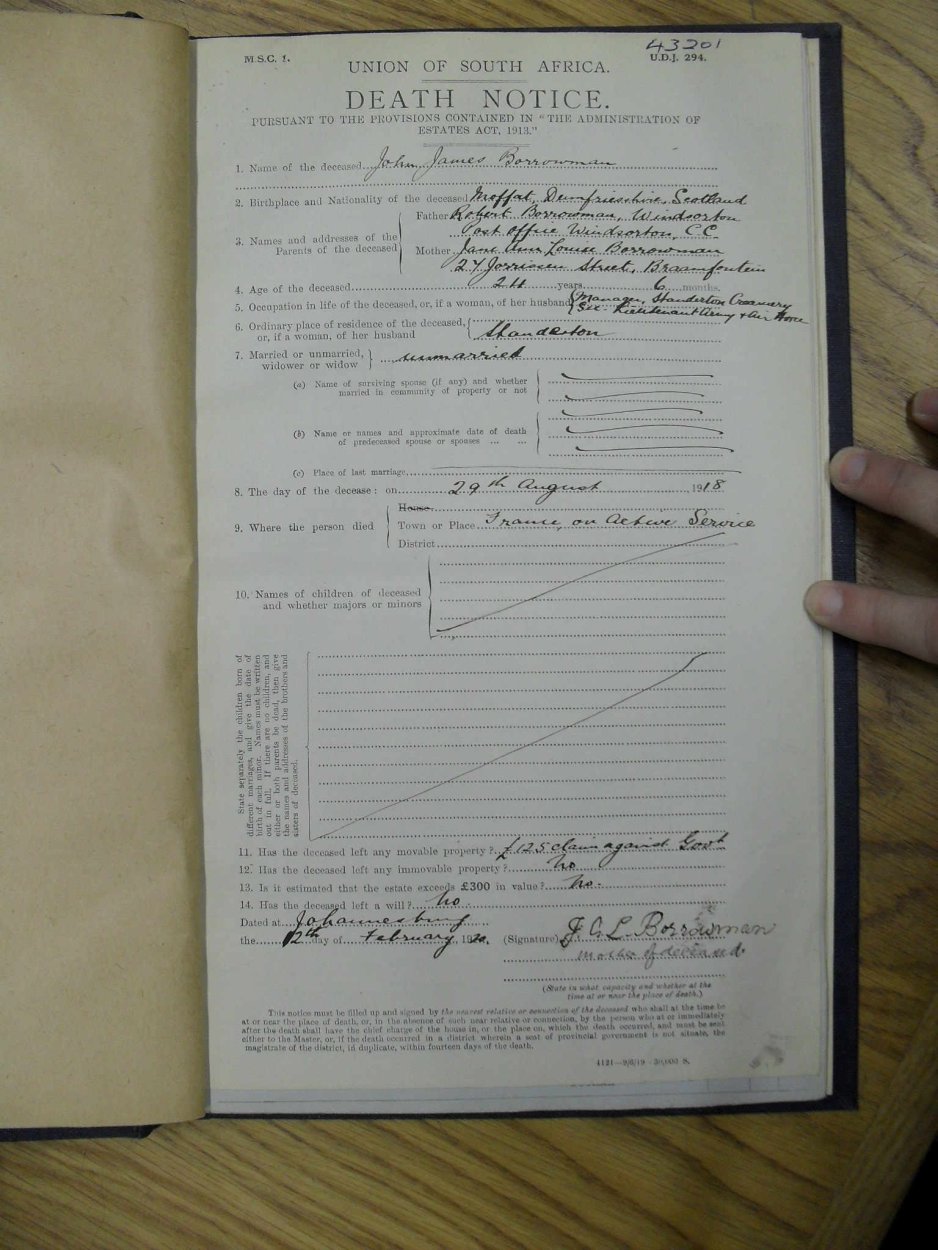 43201
M.S.C. 1.
U.D.J. 294.
UNION OF SOUTH AFRICA.
DEATH NOTICE.
PURSUANT TO THE PROVISIONS CONTAINED IN "THE ADMINISTRATION OF
ESTATES ACT, 1913."
1. Name of the deceased John James Borrowman
2. Birthplace and Nationality of the deceased Moffat, Dumfriesshire, Scotland
3. Names and addresses of the Parents of the deceased
Father Robert Borrowman, Windsorton
Post Office Windsorton, C.C
Mother Jane Ann Louise Borrowman
27 Jorrissen Street, Braamfontein
4. Age of the deceased 24 years 6 months.
5. Occupation in life of the deceased, or, if a woman, of her husband Manager, Standerton Creamery
Sec. Lieutenant Army & Air Force
6. Ordinary place of residence of the deceased,
or, if a woman, of her husband Standerton
7. Married or unmarried,
widower or widow unmarried
(a) Name of surviving spouse (if any) and whether
married in community of property or not
(b) Name or names and approximate date of death
of predeceased spouse or spouses ... ...
(c) Place of last marriage
8. The day of the decease: on 29th August 1918
House
9. Where the person died
Town or Place France, on Active Service
District
10. Names of children of deceased
and whether majors or minors
State separately the children born of
different marriages, and give the date of
birth of each minor. Names must be written
out in full. If there are no children, and
either or both parents be dead, then give
the names and addresses of the brothers and
sisters of deceased.
11. Has the deceased left any movable property? £125 claim against Govt
12. Has the deceased left any immovable property? no
13. Is it estimated that the estate exceeds £300 in value? no.
14. Has the deceased left a will? no
Dated at Johannesburg
the 12th day of February, 1920.
(Signature) J A L Borrowman
mother of deceased.
(State in what capacity and whether at the
time at or near the place of death.)
This notice must be filled up and signed by the nearest relative or connection of the deceased who shall at the time be
at or near the place of death, or, in the absence of such near relative or connection, by the person who at or immediately
after the death shall have the chief charge of the house in, or the place on, which the death occurred, and must be sent
either to the Master, or, if the death occurred in a district wherein a seat of provincial government is not situate, the
magistrate of the district, in duplicate, within fourteen days of the death.
4121—9/6/19—50,000 S.